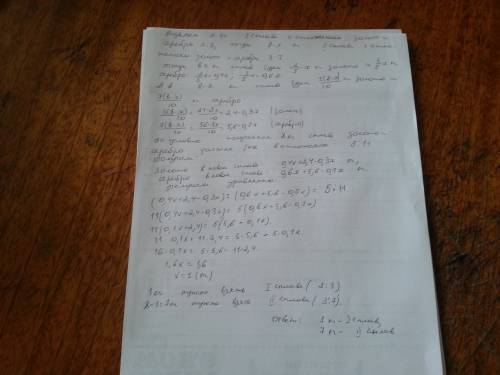 Возьмем x кг I сплава с отношением золота и
серебра 2:3, тогда 8-x кг II сплава с отно-
золота серебра 3:7
тогда в x кг сплава будет 2/5 x кг золота и 3/5 x кг
серебра 2/5x=0,4x; 3/5x=0,6x
А в 8-x кг сплава будет 3(8-x)/10 кг золота и
7(8-x)/10 кг серебра
3(8-x)/10 = 24-3x/10 = 2,4-0,3x (золото)
7(8-x)/10 = 56-7x/10 = 5,6-0,7x (серебро)
По условию 8 кг сплав золото-
серебро должен быть в отношении 5:11
Золото в новом сплаве 0,4x+2,4-0,3x кг,
серебро в новом сплаве 0,6x+5,6-0,7x кг
уравнение
(0,4x+2,4-0,3x):(0,6x+5,6-0,7x)=5:11
11(0,4x+2,4-0,3x)=5(0,6x+5,6-0,7x)
11(0,1x+2,4)=5(5,6-0,1x)
11·0,1x+11·2,4=5·5,6-5·0,1x
16·0,1x=5·5,6-11·2,4
1,6x=1,6
x=1 (кг)
1 кг нужно взять I сплава (2:3)
8-1=7 кг нужно взять II сплава (3:7)
Ответ: 1 кг - I сплава,
7 кг - II сплава